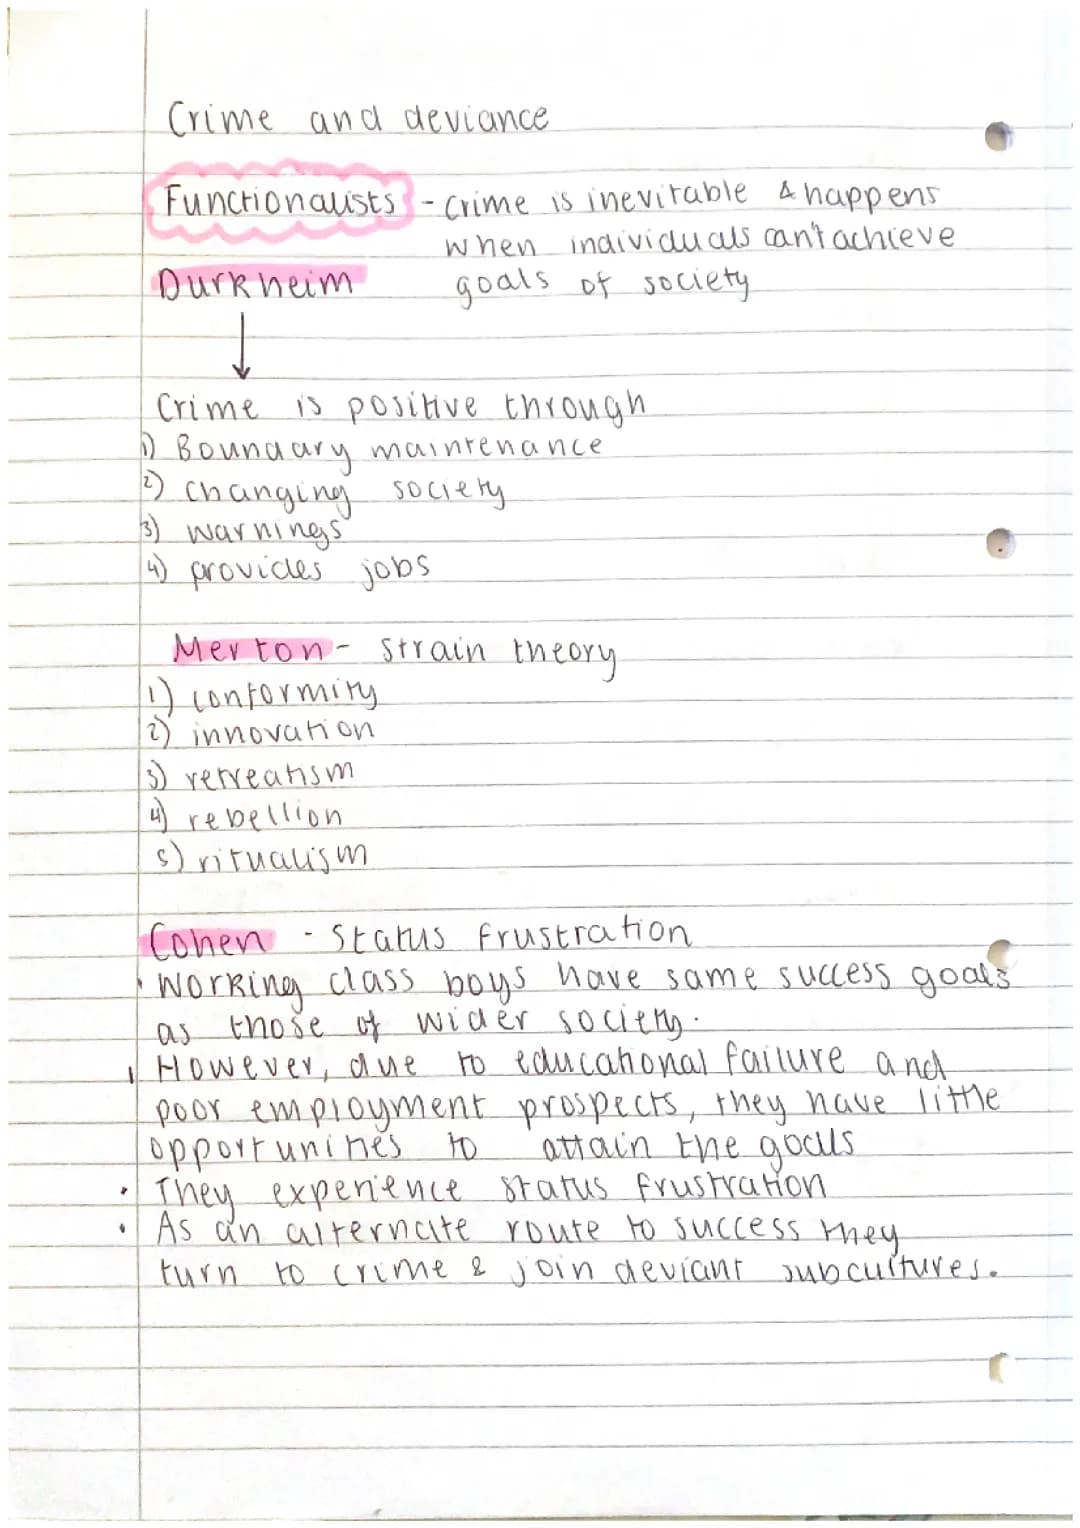 Crime and deviance
Functionalists - crime is inevitable & happens
when individuals can't achieve
Durkheim goals of society
↓
Crime is positive through
1) Boundary maintenance
2) changing society
3) warnings
4) provides jobs
Merton - strain theory
1) conformity
2) innovation
3) retreatism
4) rebellion
5) ritualism
Cohen - Status frustration
• Working class boys have same success goals
as those of wider society.
• However, due to educational failure and
poor employment prospects, they have little
opportunities to attain the goals
• They experience status frustration
• As an alternate route to success they
turn to crime & join deviant subcultures.